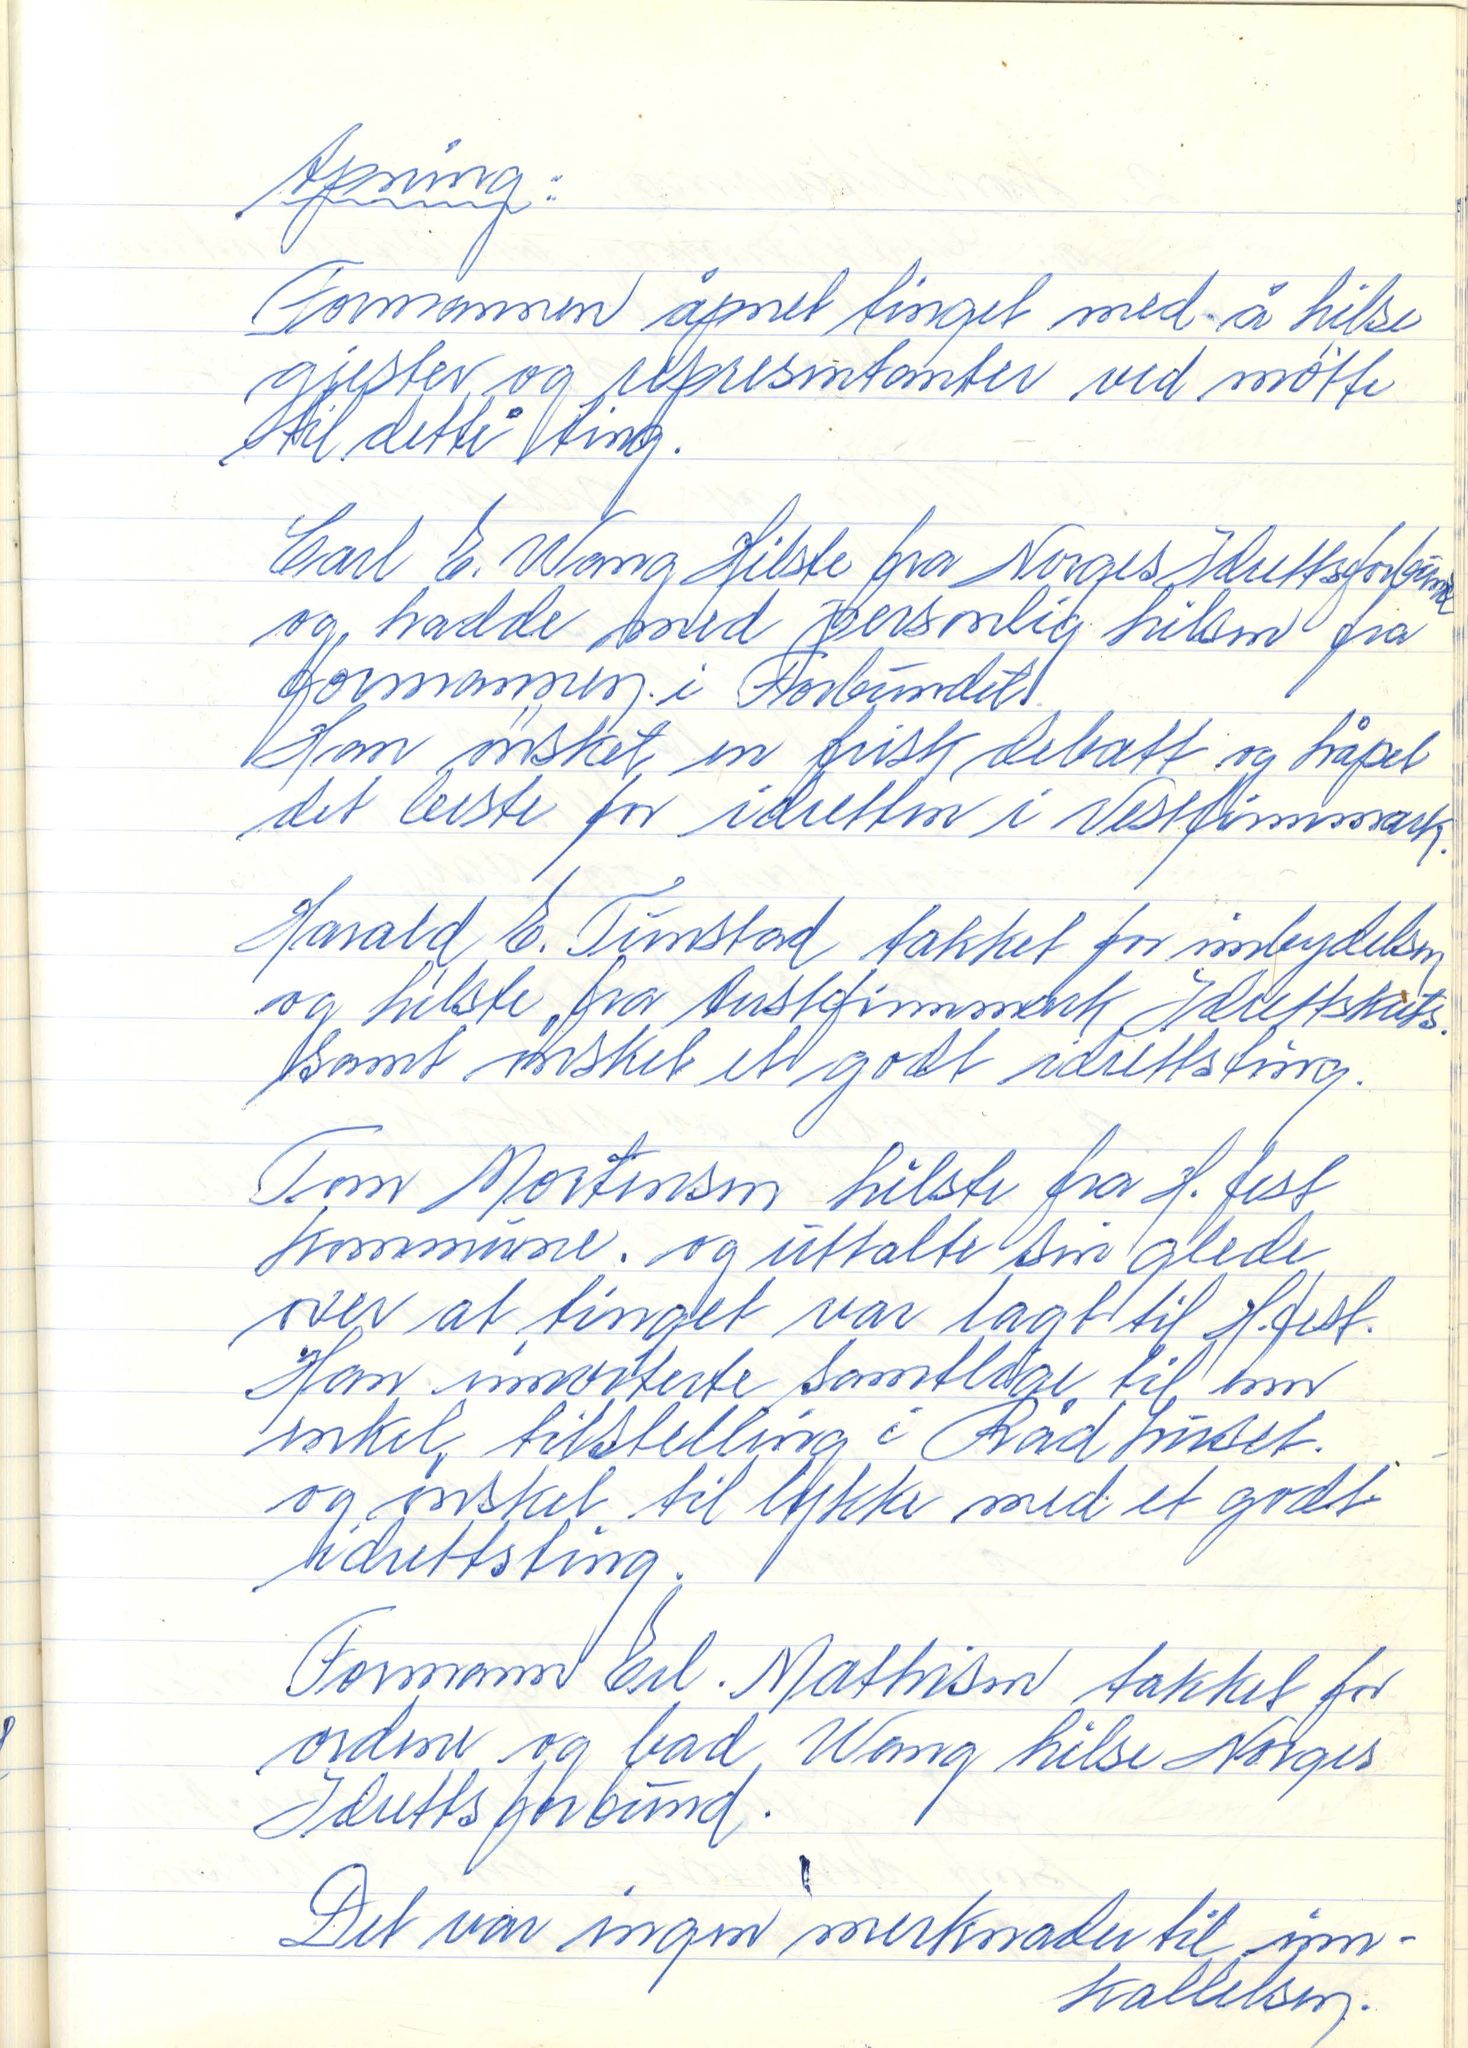 Åpning:
Formannen åpnet tinget med å hilse
gjester og representanter ved møtte
til dette ting.
Carl E. Wang Hilste fra Norges Idrettsforbund
og hadde med personlig hilsen fra
formannen i Forbundet.
Han ønsket en frisk debatt og håpet
det beste for idretten i Vestfinnmark.
Harald E. Tunstad takket for innbydelsen
og hilste fra Austfinnmark Idrettskrets.
samt ønsket et godt idrettsting.
Tom Mortensen hilste fra H. fest
kommune. og uttalte sin glede
over at tinget var lagt til H.fest.
Han inviterte samtlige til enn
enkel tilstelling i Råd huset.
og ønsket til lykke med et godt
idrettsting.
Formann Erl. Mathisen takket for
ordene og bad Wang hilse Norges
Idrettsforbund.
Det var ingen merknader til inn-
kallelsen.